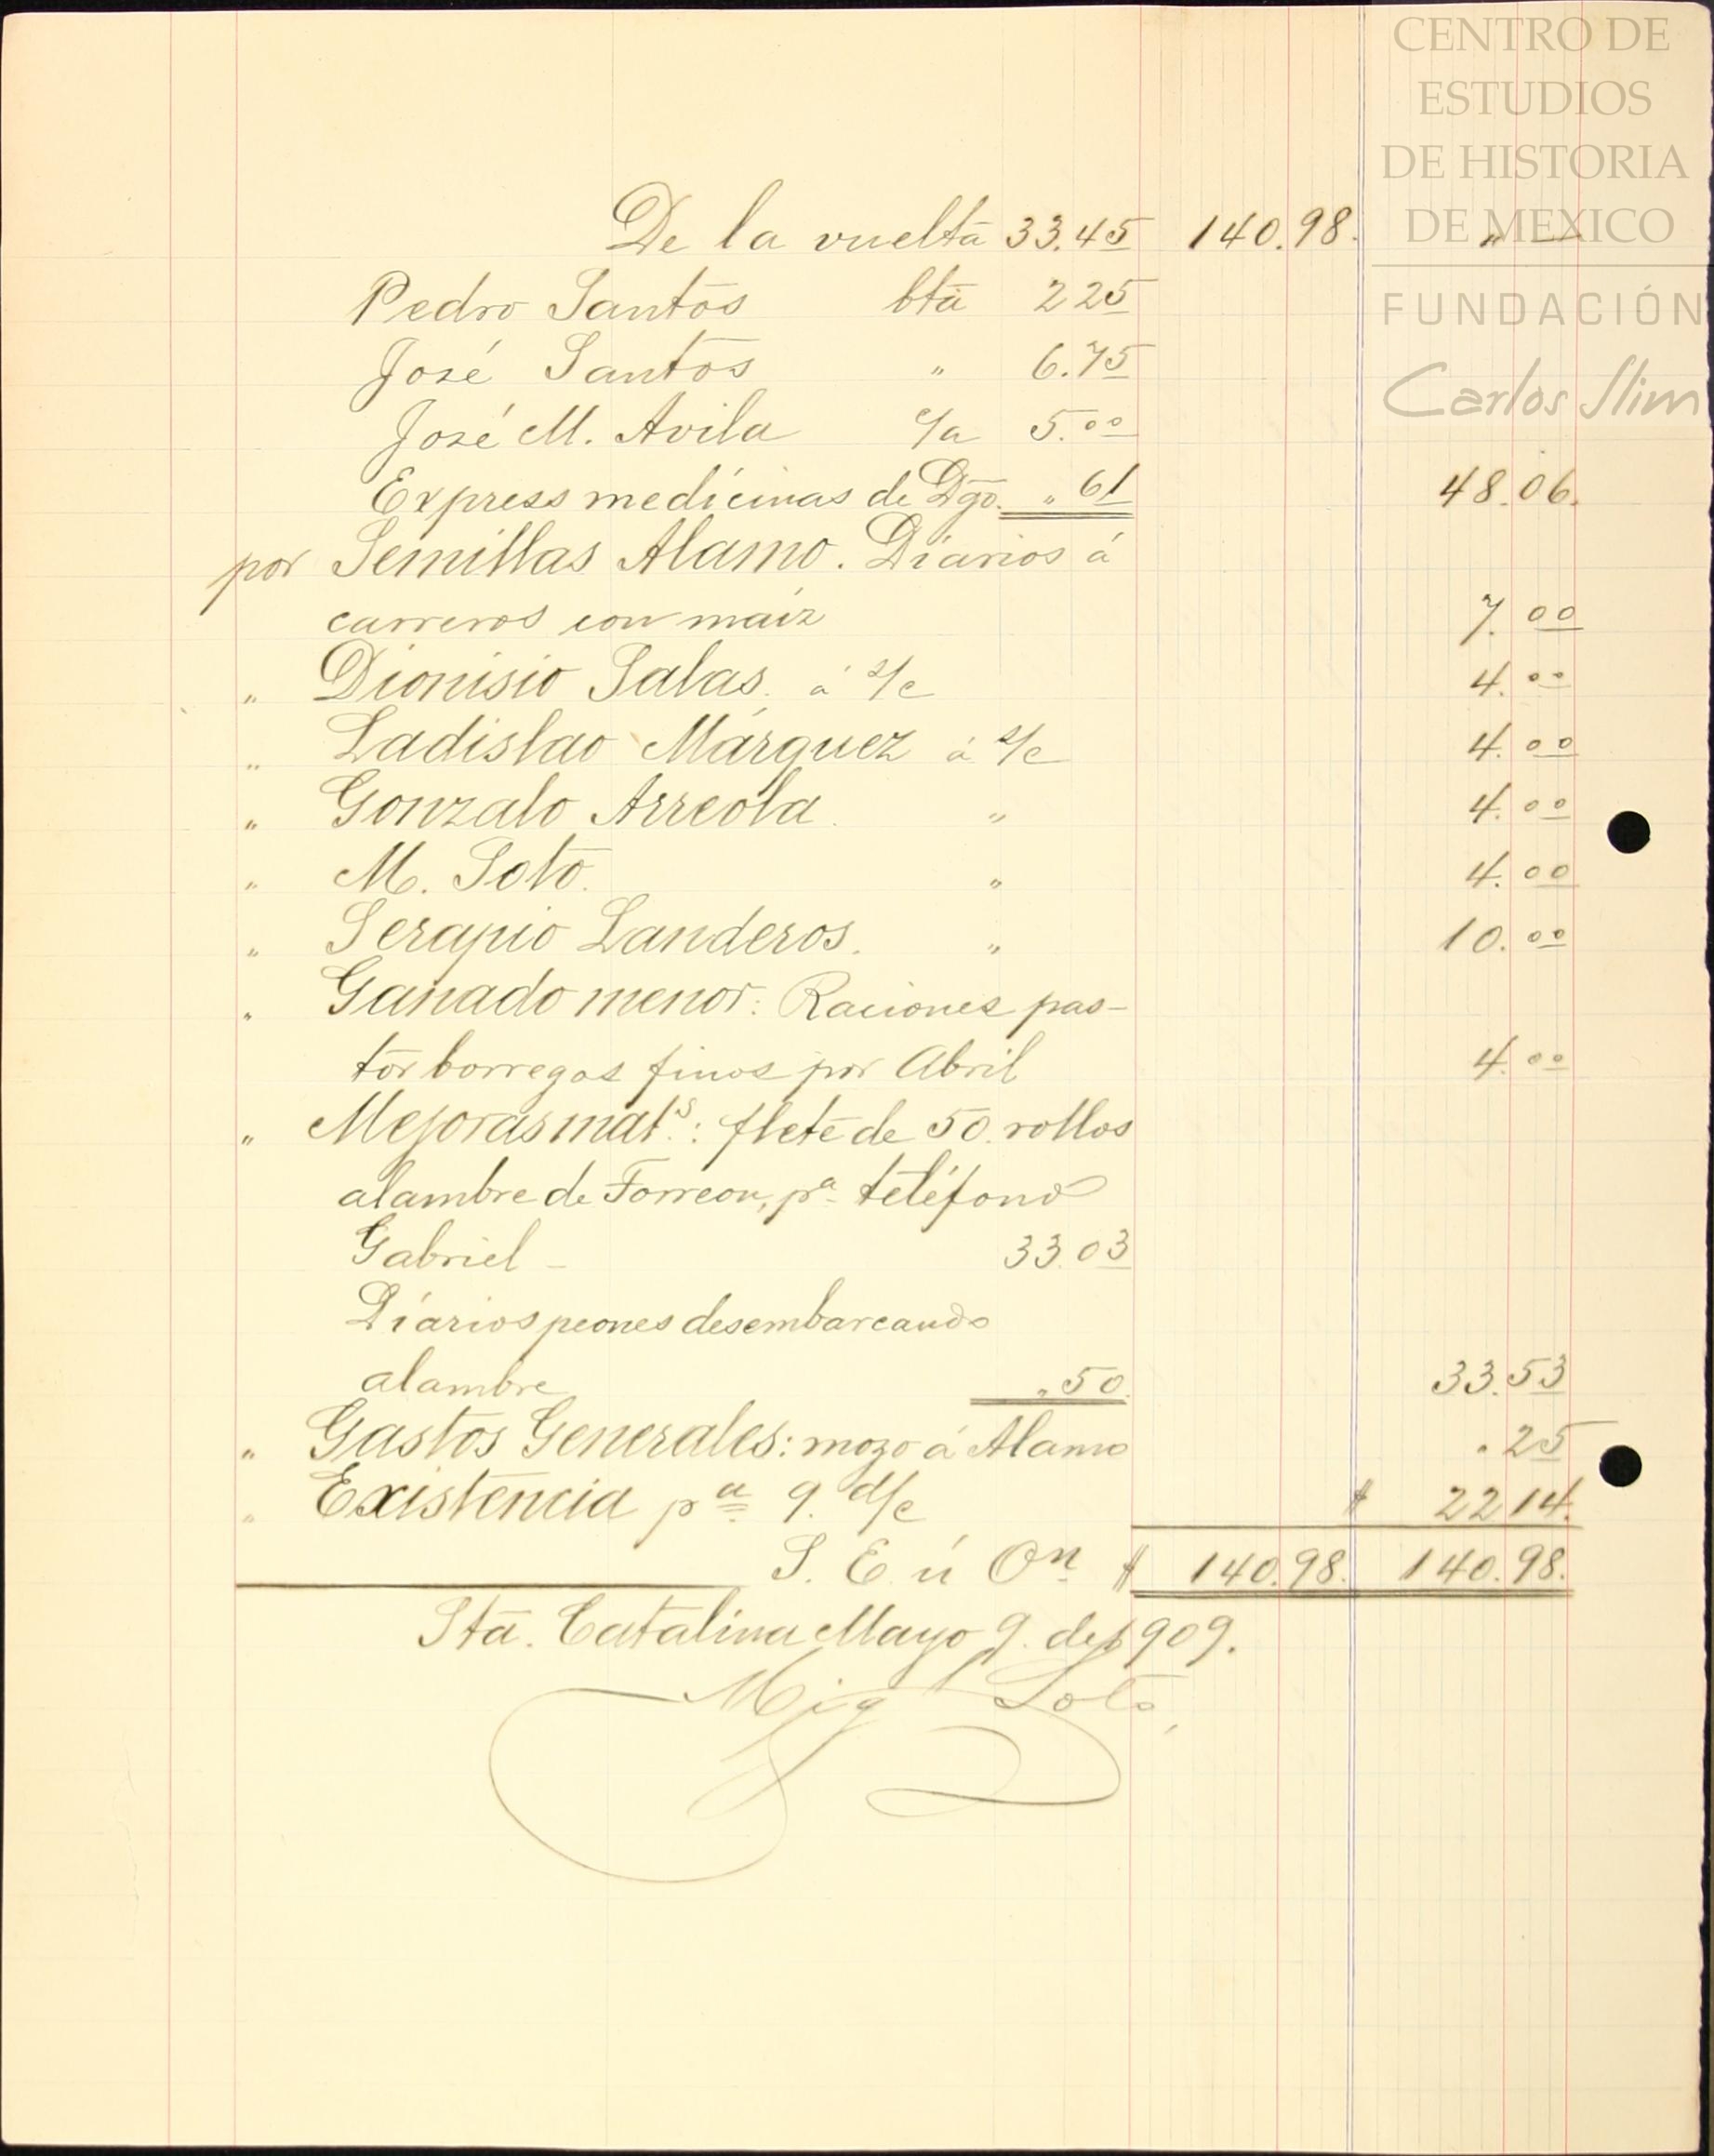 CENTRO DE
ESTUDIOS
DE HISTORIA
DE MEXICO
FUNDACIÓN
Carlos Slim
De la vuelta 33.45 140.98. „ —
Pedro Santos bta 2 25
José Santos „ 6.75
José M. Avila c/a 5.00
Express medicinas de Dgo. „ 61 48.06.
por Semillas Alamo. Diarios á
carreros con maiz 7.00
„ Dionisio Salas. á s/c 4.00
„ Ladislao Márquez á s/c 4.00
„ Gonzalo Arreola. „ 4.00
„ M. Soto. „ 4.00
„ Serapio Landeros. „ 10.00
„ Ganado menor: Raciones pas-
tor borregos finos por Abril 4.00
„ Mejoras mats.: flete de 50. rollos
alambre de Torreon, pa teléfono
Gabriel — 33.03
Diarios peones desembarcando
alambre „ 50. 33.53
„ Gastos Generales: mozo á Alamo . 25
„ Existencia pa 9. d/c $ 22 14.
S. E. ú On $ 140.98. 140.98.
Sta. Catalina Mayo 9. de 1909.
Mig Soto,